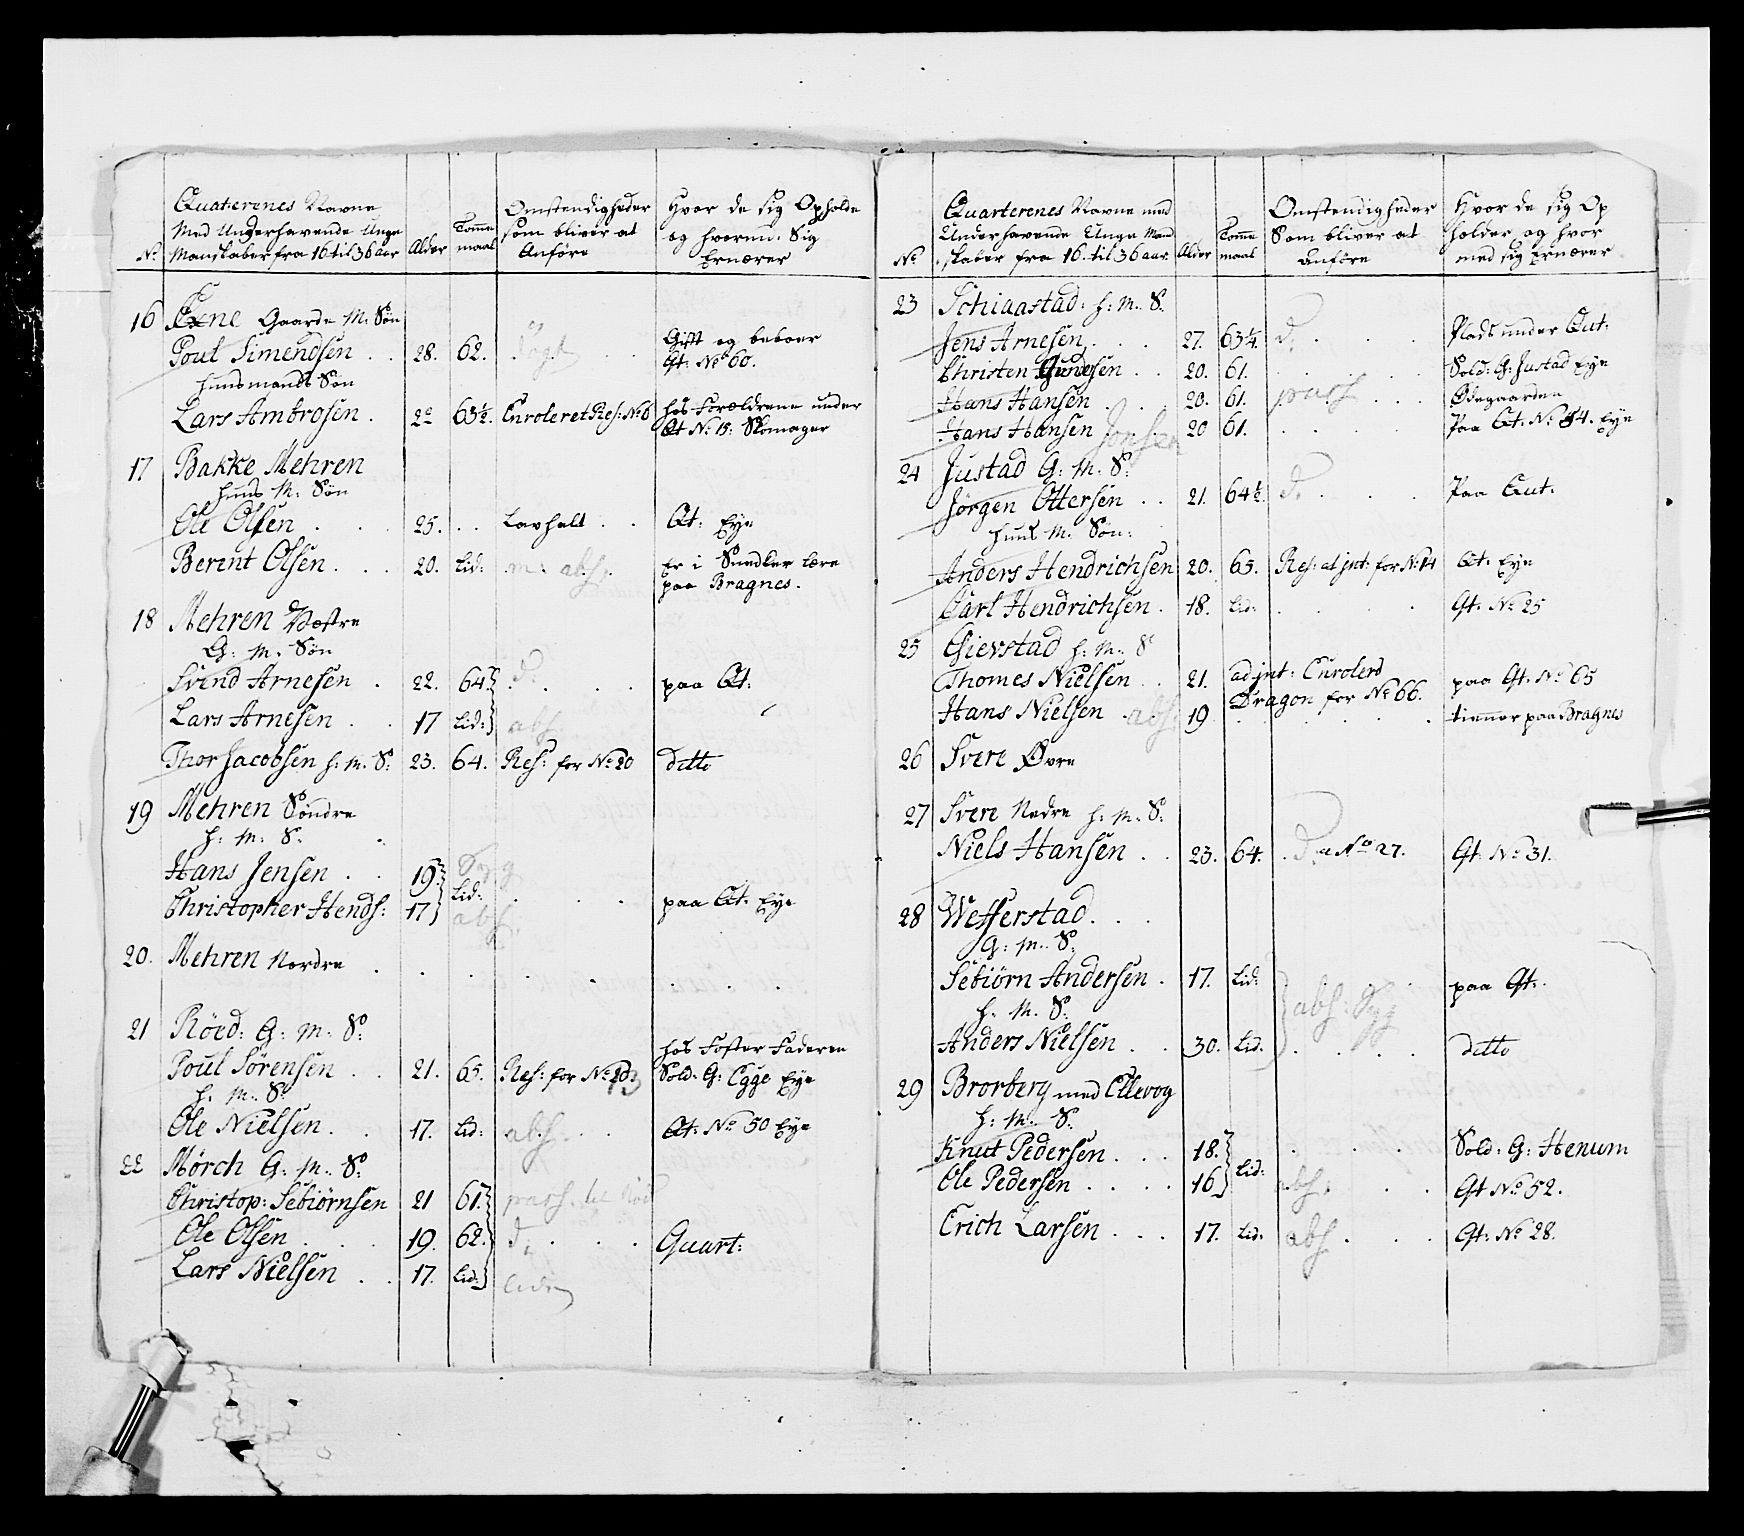 No
Quarterenes Navne
Med Underhavende Unge
Manskaber fra 16 til 36 aar
Alder
Tomme
maal
Omstendigheder
som bliver at
Anføre
Hvor de sig Opholde
og hvormed Sig
Ernærer
16 Exne Gaards M: Søn
Poul Simensen . . 28. 62. Gift og beboer
Qt: No 60.
Huusmands Søn
Lars Ambrosen . 22 63½. Enroleret Res: No 6 hos Forældrene under
Qt No 15: Skomager
17 Bakke Mehren
Huus M: Søn
Ole Olsen . . . 25. . . Lavhalt . . Qt: Eye
Berent Olsen . . . 20. Lid: abs: Er i Snedker lære
paa Bragnes.
18 Mehren Vestre
G: M. Søn
Svend Arnesen . 22. 64. d. . . . paa Qt:
Lars Arnesen . . 17 Lid: abs
Thor Jacobsen H: M. S: 23. 64. Res: for No 20 ditto
19 Mehren Søndre
H: M: S:
Hans Jensen . . 19.
Lid:
Christopher Hends: 17 abs . . . paa Qt: Eye
20. Mehren Nordre . . . . . . . .
21 Röed: G: M: S:
Poul Sørensen . . 21. 65. Res: for No hos Foster Faderen
Sold. G: Egge Eye
H. M. S:
Ole Nielsen . . 17. Lid: abs: . . Qt: No 50 Eye
22 Mörch G: M: S:
Christop: Sebiörnsen 21 61.
Ole Olsen . . . 19. 62. d: . . . Quart:
Lars Nielsen . . 17. Lid:
No
Quarterenes Navne med
Underhavende Unge Mand
skaber fra 16. til 36 aar
Alder
Tomme
maal
Omstendigheder
Som bliver at
anføre
Hvor de sig Op
holder og hvor
med sig Ernærer
23 Schiaastad: H: M. S:
Jens Arnesen . . . 27. 63¼. d. . . . Plads under Qut:
Christen Gundesen . . 20. 61. . . . Sold: G: Justad Eye
Hans Hansen . . . 20. 61. . . . Ødegaarden
Hans Hansen Jonsen 20 61. . . . . Paa Qt: No 54. Eye
24 Justad G: M. S:
Jörgen Ottersen . . 21. 64½. d. . . . Paa Qut:
Huus M. Søn:
Anders Hendrichsen 20. 65. Res: at jnt: for No 14 Qt: Eye
Carl Hendrichsen . 18. Lid: . . . . Qt: No 25
25 Gievstad H: M: S
Thomes Nielsen . . 21. adjnt: Enrolerd
Dragon for No 66. paa Qt: No 65
Hans Nielsen . abs: 19 . . . . . tienner paa Bragnes
26 Svere Øvre
27 Svere Nedre H: M: S:
Niels Hansen . . 23. 64. . d. a No 27. Qt: No 31.
28 Wefferstad . . .
G: M: S:
Sebiörn Andersen . 17. Lid: abs: . paa Qt:
H. M. S:
Anders Nielsen . . 30. Lid. . . . . ditto
29 Brorberg med Ellevog
H: M: S:
Knut Pedersen . . . 18. . . . Sold: G: Henum
Lid:
Ole Pedersen . . . . 16 abs: . . Qt No 52.
Erich Larsen . . . 17. Lid: abs . . . Qt: No 28.